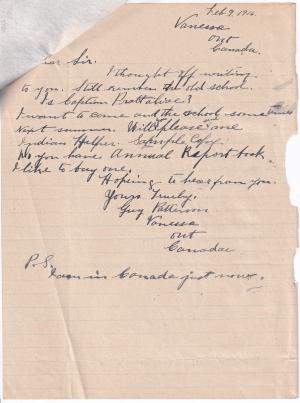 Feb 9, 1916.
Vanessa
Ont
Canada.
ear Sir.
I thought off writing
to you. Still remember the old school.
Is Captain Pratt alive?
I want to come and the school sometimes
Next summer. Will please one
Indian Helper Sample Copy.
Do you have Annual Report book.
I like to buy one.
Hoping to hear from you.
Yours Truely.
Guy Patterson
Vanessa
Ont
Canada
P.S.
I am in Canada just now.